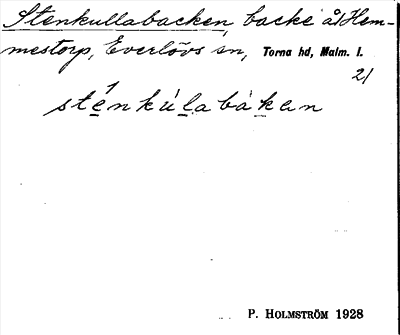 Stenkullabacken, backe å Hem-
mestorp, Everlövs sn, Torna hd, Malm. l.
2/
sténkúlabàkan
P. HOLMSTRÖM 1928